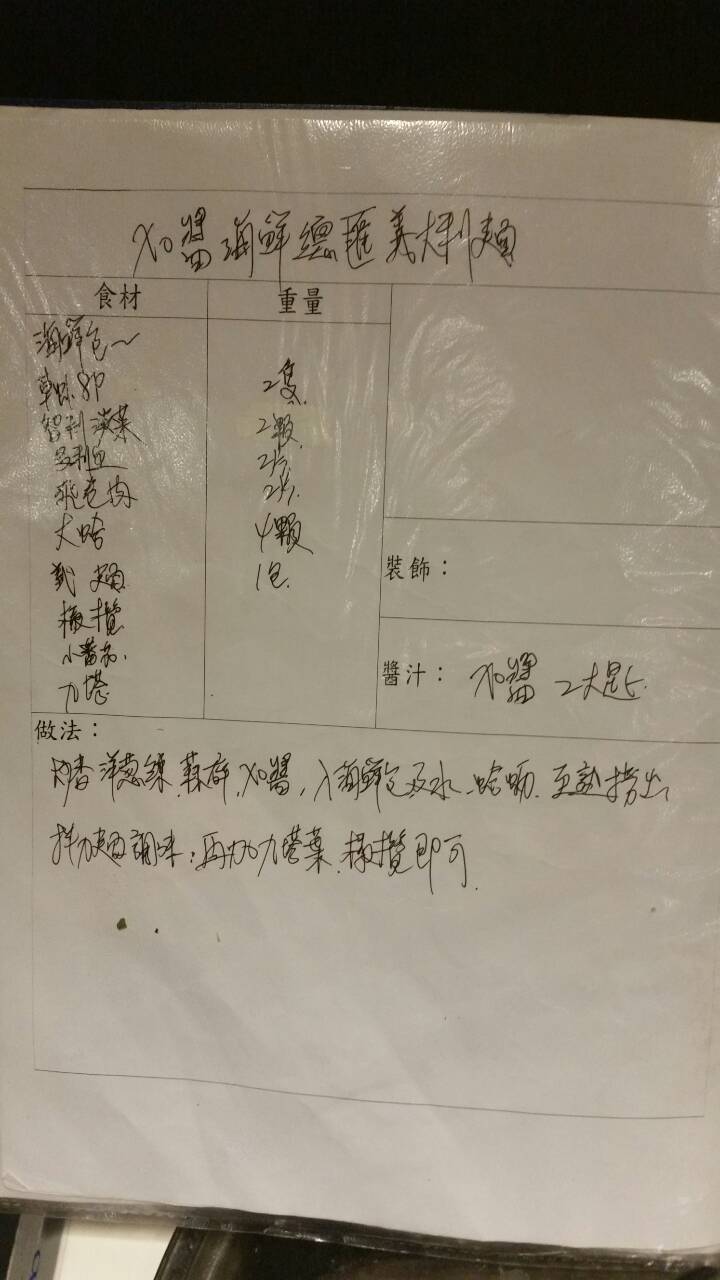 XO醬海鮮總匯義大利麵
食材 重量
海鮮包~
草蝦8P 2隻
智利淡菜 2顆
多利魚 2片
飛卷肉 2片
大哈 4顆
義麵 1包
橄欖
小蕃茄
九塔
裝飾：
醬汁： XO醬 2大匙
做法：
炒香洋蔥絲、蒜碎、XO醬，入海鮮包及水、哈蜊、至熟撈出
拌麵調味；再加九塔葉、橄欖即可